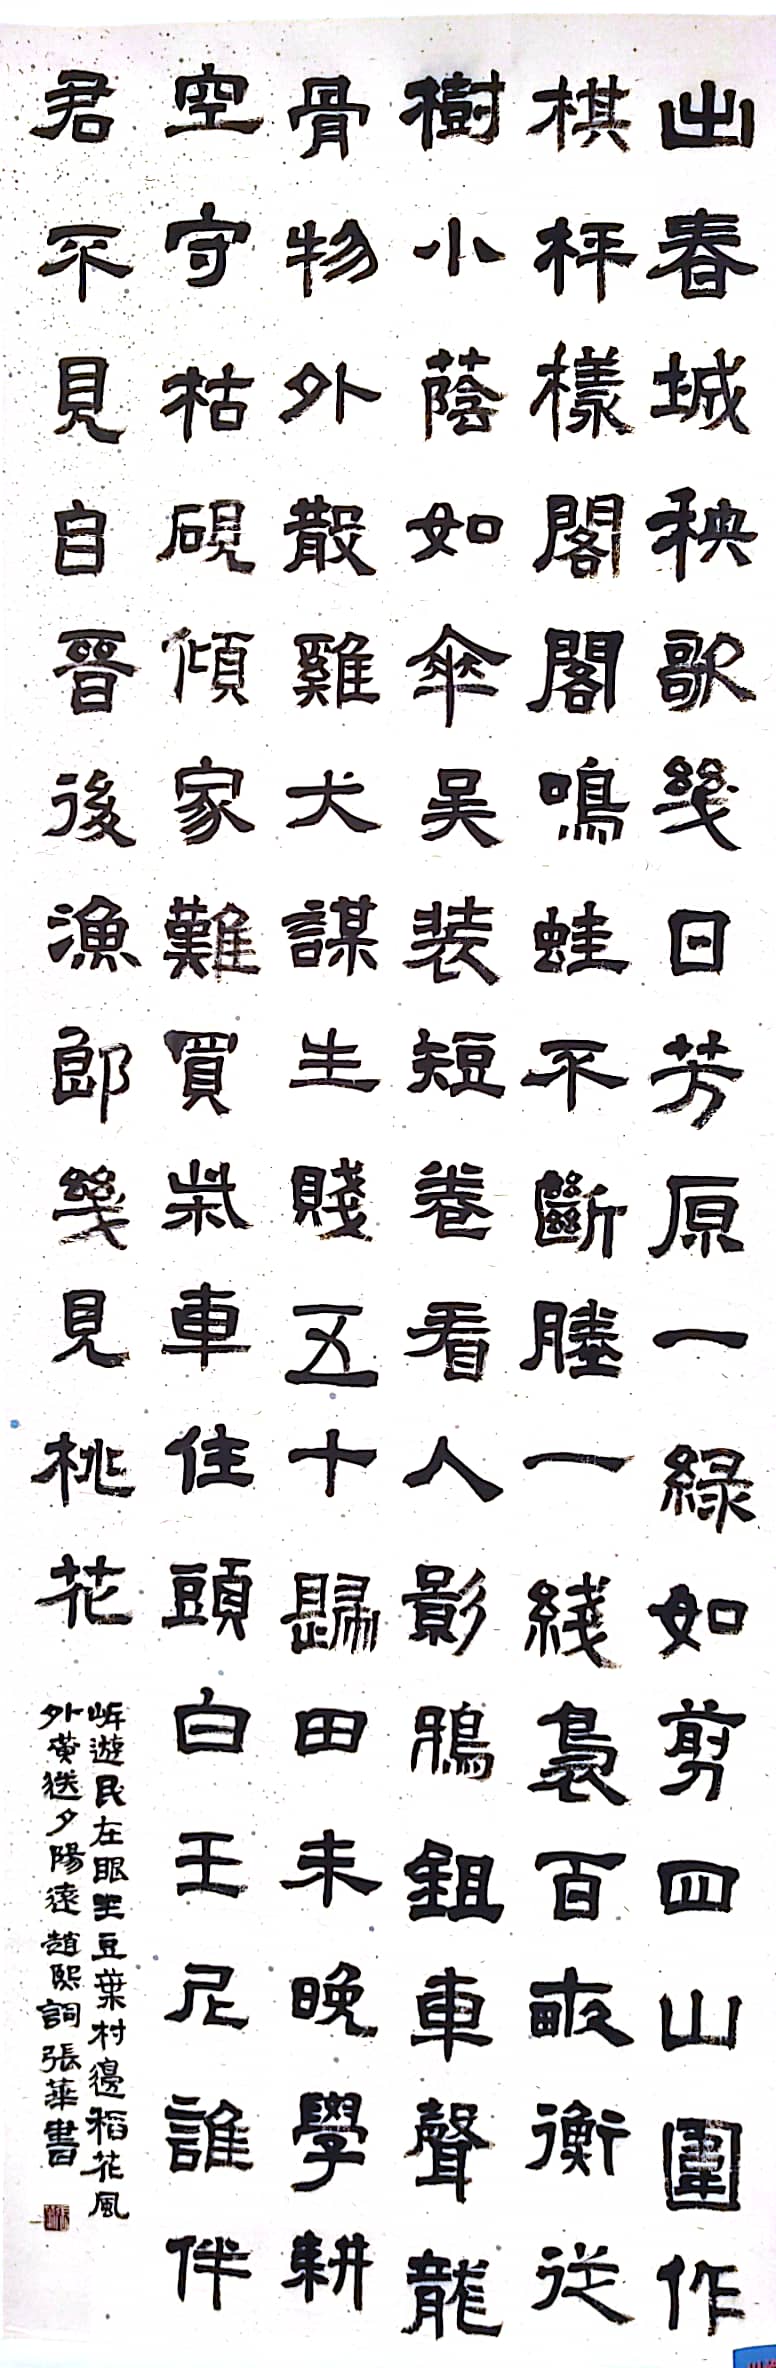 出春城秧歌幾日芳原一綠如剪四山圍作
棋枰樣閣閣鳴蛙不斷塍一綫裊百畝衡從
樹小蔭如傘吴装短卷看人影鴉鉏車聲龍
骨物外散雞犬謀生賤五十歸田未晚學耕
空守枯硯傾家難買柴車住頭白王尼誰伴
君不見自晉後漁郎幾見桃花
岸遊民左眼坐豆葉村邊稻花風
外黄送夕陽遠趙熙詞張華書